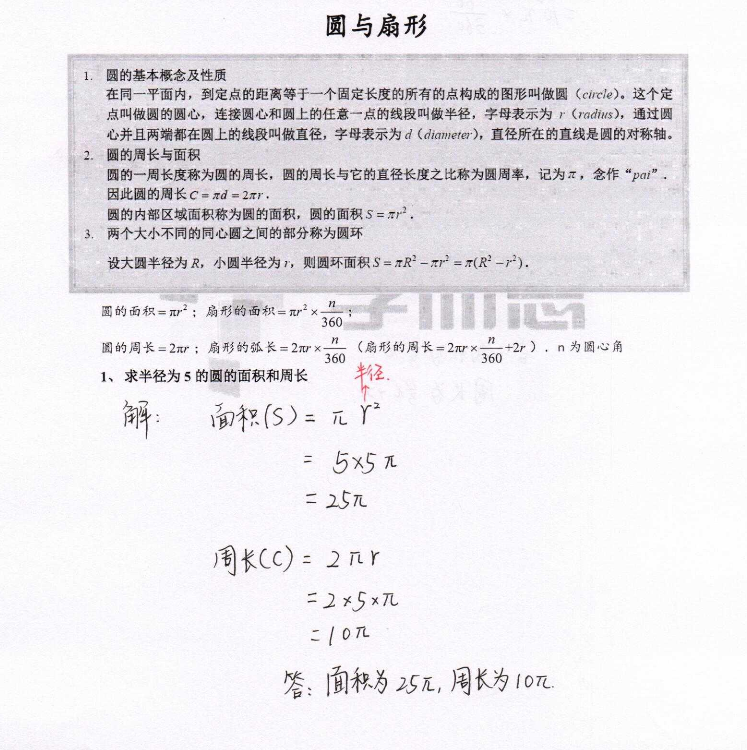 圆与扇形
1. 圆的基本概念及性质
在同一平面内，到定点的距离等于一个固定长度的所有的点构成的图形叫做圆（circle）。这个定
点叫做圆的圆心，连接圆心和圆上的任意一点的线段叫做半径，字母表示为 r（radius），通过圆
心并且两端都在圆上的线段叫做直径，字母表示为 d（diameter），直径所在的直线是圆的对称轴。
2. 圆的周长与面积
圆的一周长度称为圆的周长，圆的周长与它的直径长度之比称为圆周率，记为π，念作“pai”．
因此圆的周长 C = πd = 2πr．
圆的内部区域面积称为圆的面积，圆的面积 S = πr²．
3. 两个大小不同的同心圆之间的部分称为圆环
设大圆半径为 R，小圆半径为 r，则圆环面积 S = πR² − πr² = π(R² − r²)．
圆的面积 = πr²；扇形的面积 = πr² × n/360；
圆的周长 = 2πr；扇形的弧长 = 2πr × n/360（扇形的周长 = 2πr × n/360 +2r）．n 为圆心角
1、求半径为 5 的圆的面积和周长
半径.
解：面积(S) = π r²
= 5×5 π
= 25π
周长(C) = 2πr
= 2×5×π
= 10π
答：面积为25π, 周长为10π.